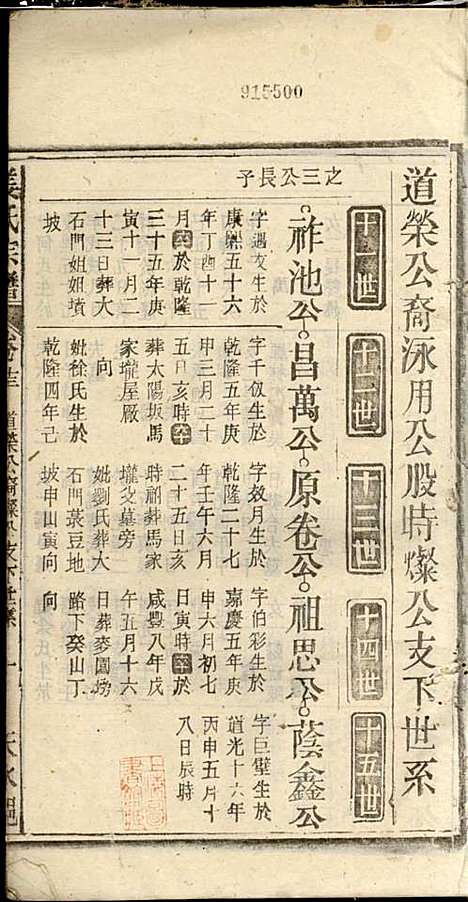 915500
道榮公裔泳用公股時燦公支下世系
十一世
十二世
十三世
十四世
十五世
之三公長子
祚池公
昌萬公
原卷公
祖思公
蔭鑫公
字遇文生於
康熙五十六
年丁酉十一
月 於乾隆
三十五年庚
寅十一月二
十三日葬大
石門姐姐墳
坡
字千仭生於
乾隆五年庚
申三月二十
五日亥時
葬太陽坂馬
家壠屋厰
向
妣徐氏生於
乾隆四年己
字效月生於
乾隆二十七
年壬午六月
二十五日亥
時祔葬馬家
壠父墓旁
妣劉氏葬大
石門菉豆地
坡申山寅向
字伯彩生於
嘉慶五年庚
申六月初七
日寅時 於
咸豐八年戊
午五月十六
日葬麥園塝
路下癸山丁
向
字巨璧生於
道光十六年
丙申五月十
八日辰時
氏宗譜
道榮公裔燦公支下世系
一
天水